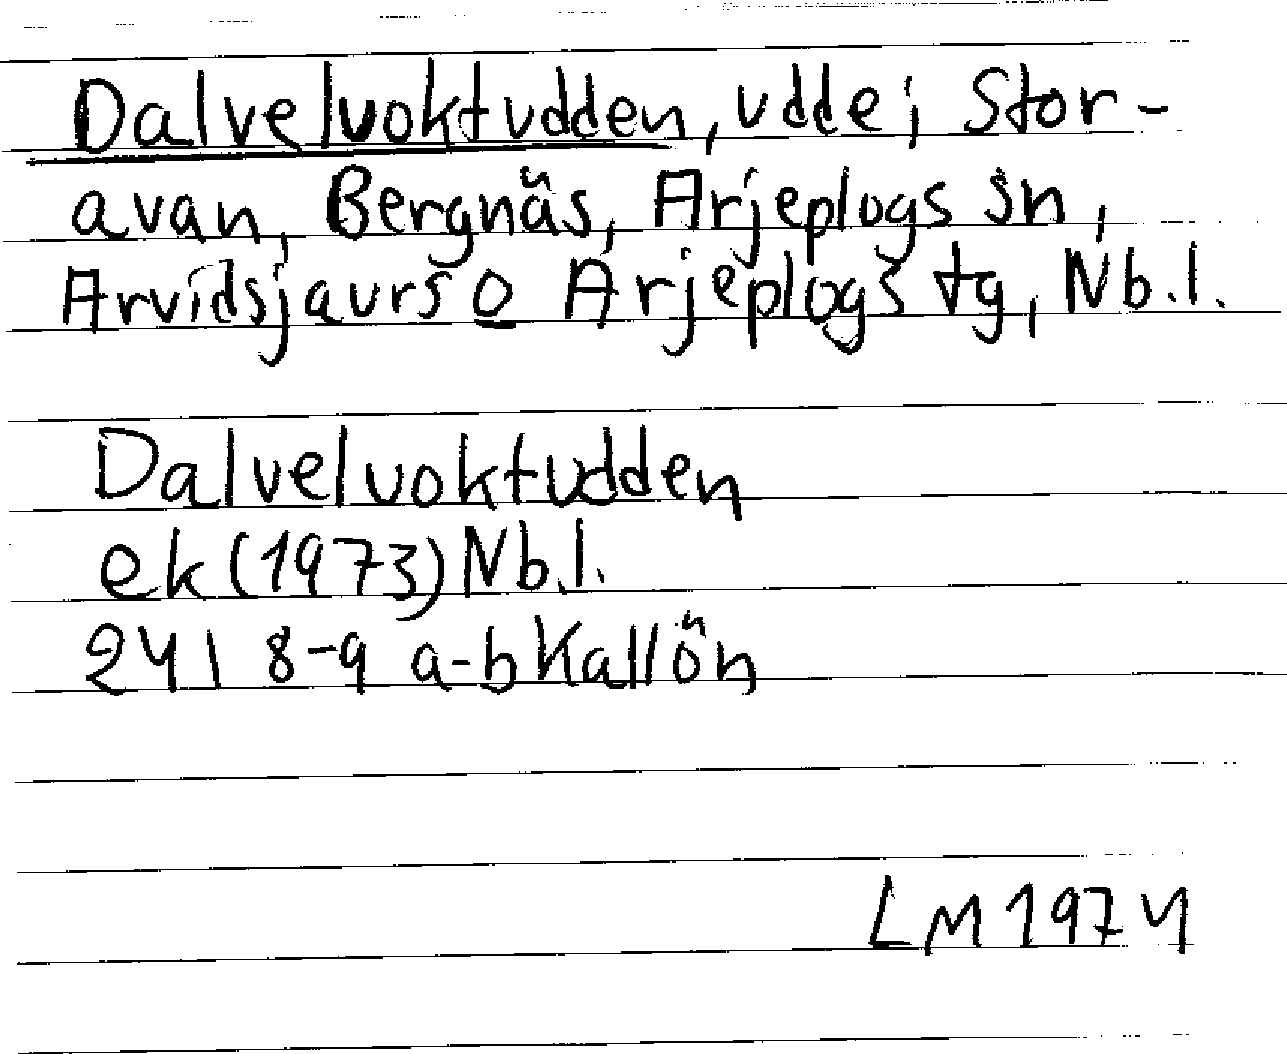 Dalveluoktudden, udde i Stor-
avan, Bergnäs, Arjeplogs sn,
Arvidsjaurs o Arjeplogs tg, Nb.l.
Dalveluoktudden
ek (1973) Nb.l.
24I 8-9 a-b Kallön
LM 1974